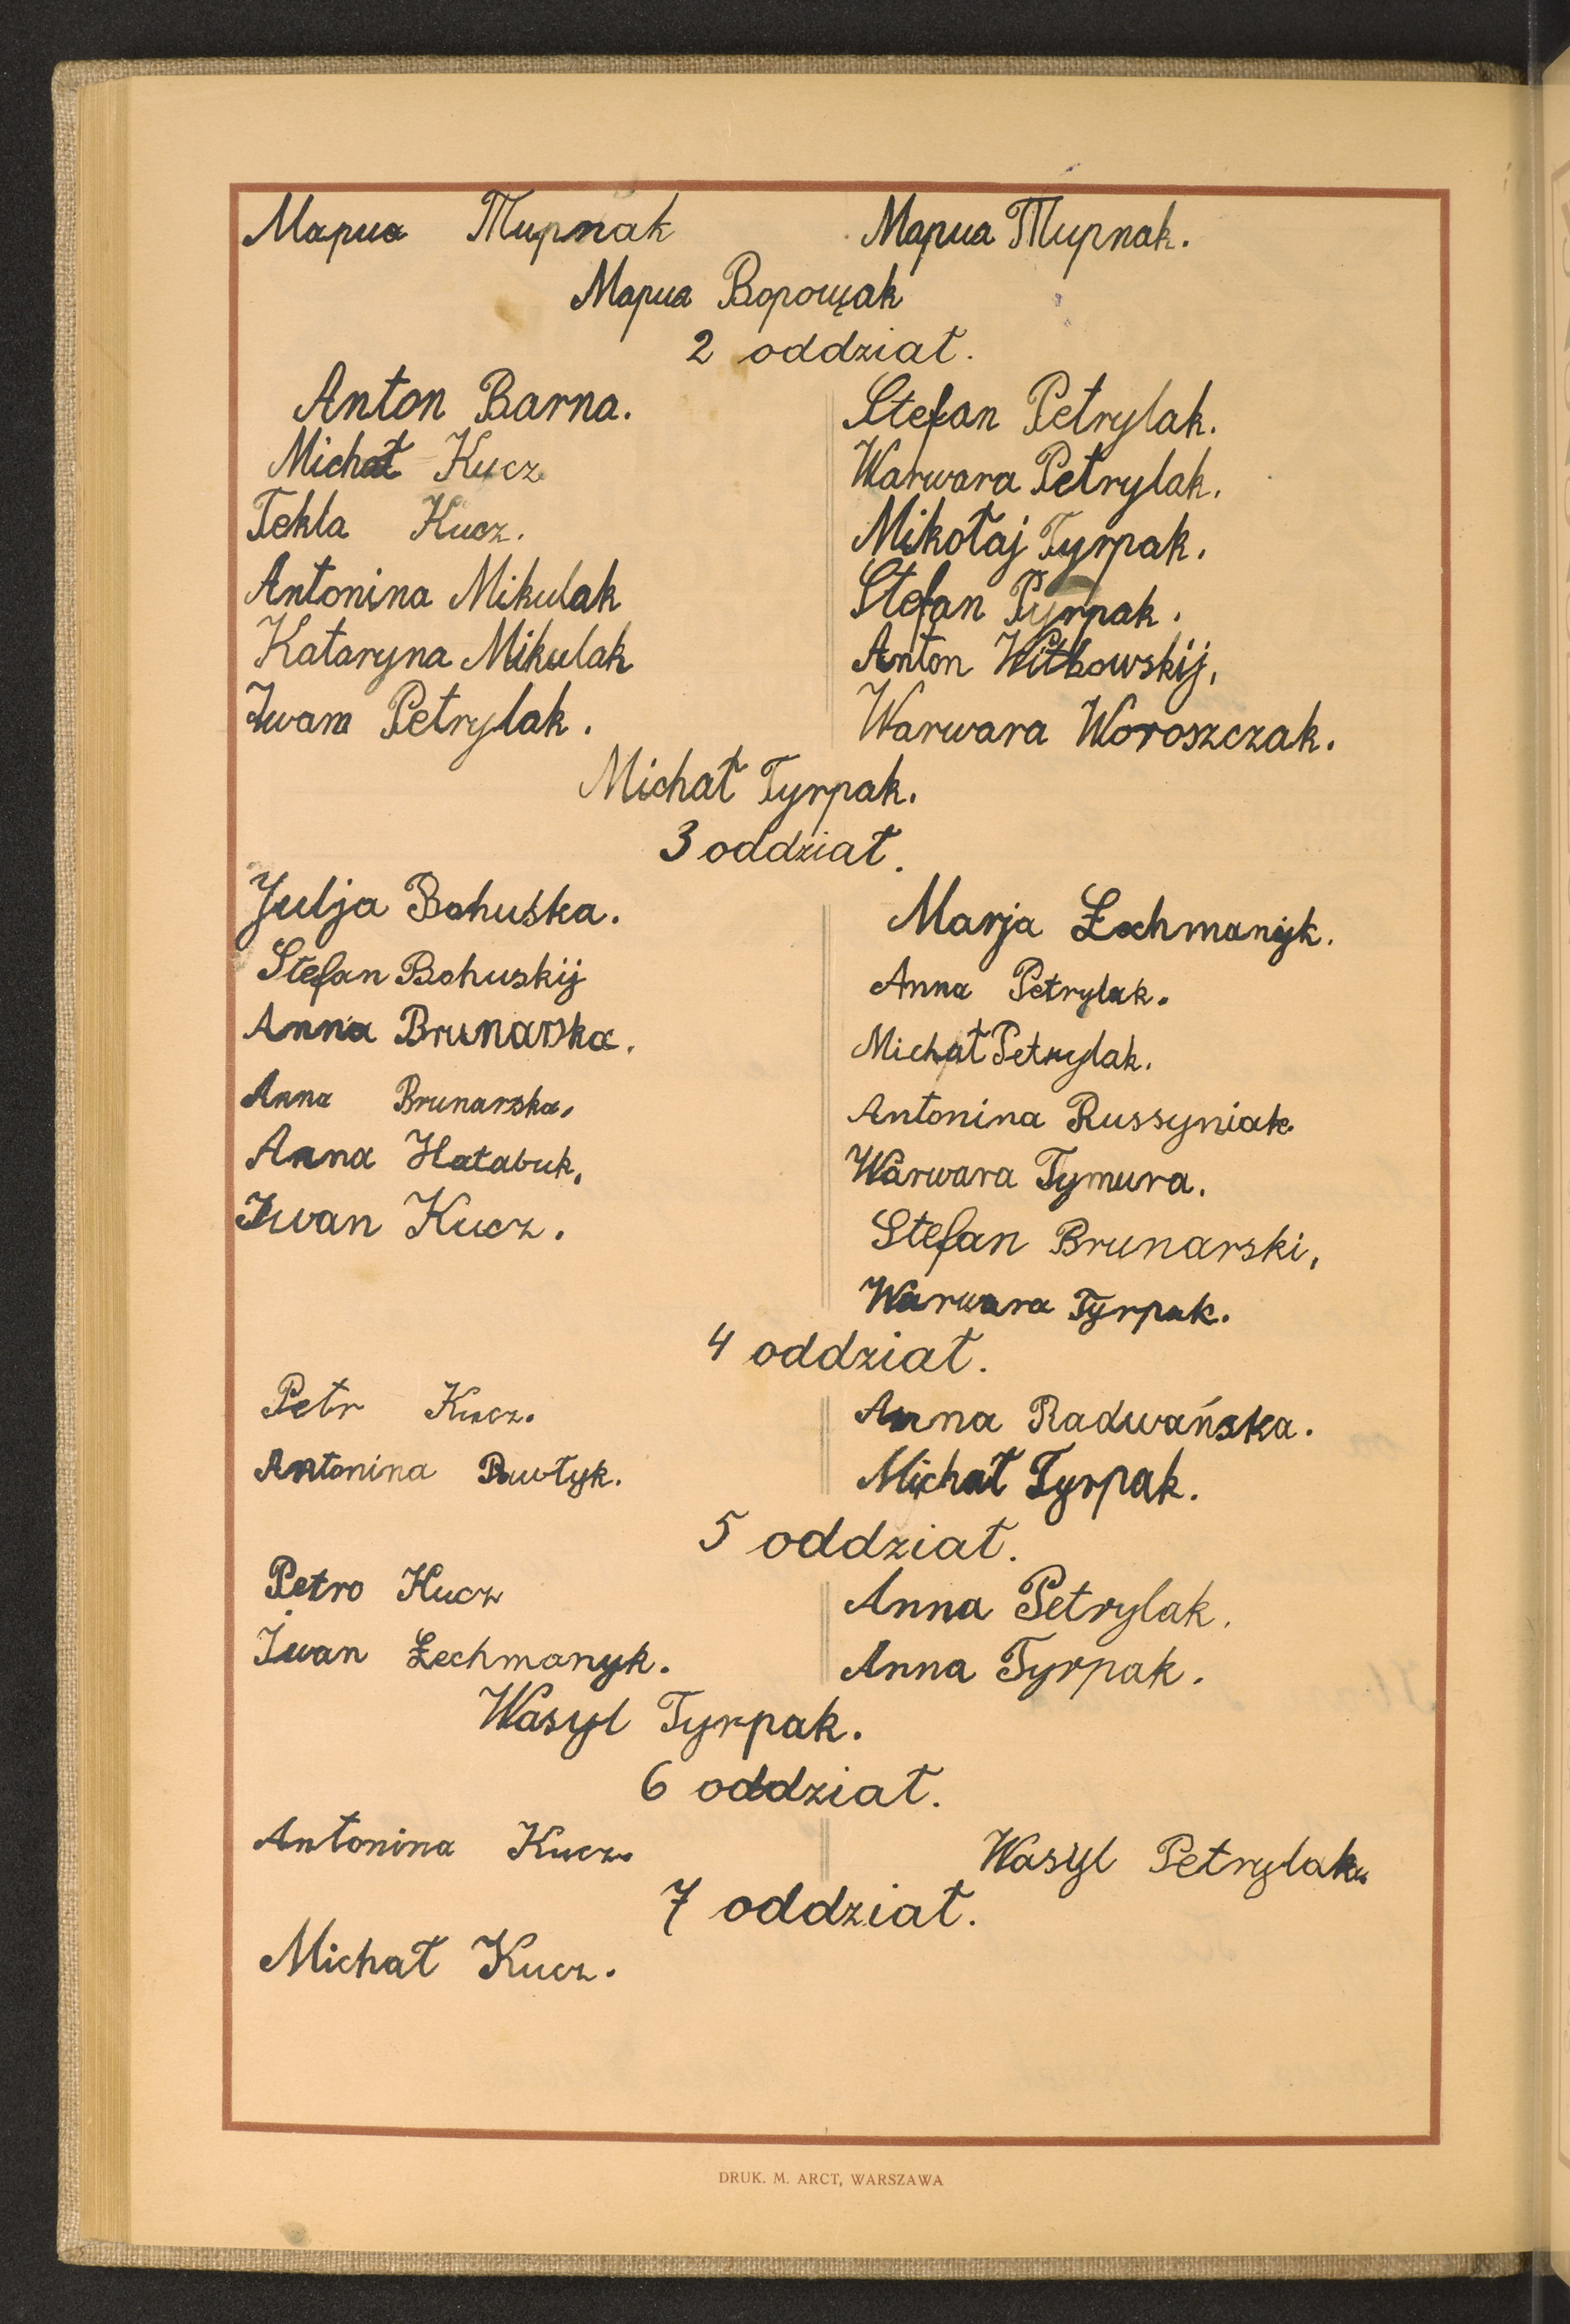 Мариа Тирпак
Мариа Тирпак.
Мариа Ворощак
2 oddział.
Anton Barna.
Michał Kucz
Tekla Kucz.
Antonina Mikulak
Kataryna Mikulak
Iwan Petrylak.
Stefan Petrylak.
Warwara Petrylak.
Mikołaj Tyrpak.
Stefan Tyrpak.
Anton Witkowskij.
Warwara Woroszczak.
Michał Tyrpak.
3 oddział.
Julja Bohuska.
Stefan Bohuskij
Anna Brunarska.
Anna Brunarska.
Anna Hatabuk.
Iwan Kucz.
Marja Łechmanyk.
Anna Petrylak.
Michał Petrylak.
Antonina Russyniak
Warwara Tymura.
Stefan Brunarski.
Warwara Tyrpak.
4 oddział.
Petr Kucz.
Antonina Pawłyk.
Anna Radwańska.
Michał Tyrpak.
5 oddział.
Petro Kucz
Iwan Łechmanyk.
Anna Petrylak.
Anna Tyrpak.
Wasyl Tyrpak.
6 oddział.
Antonina Kucz.
Wasyl Petrylak.
7 oddział.
Michał Kucz.
DRUK. M. ARCT, WARSZAWA